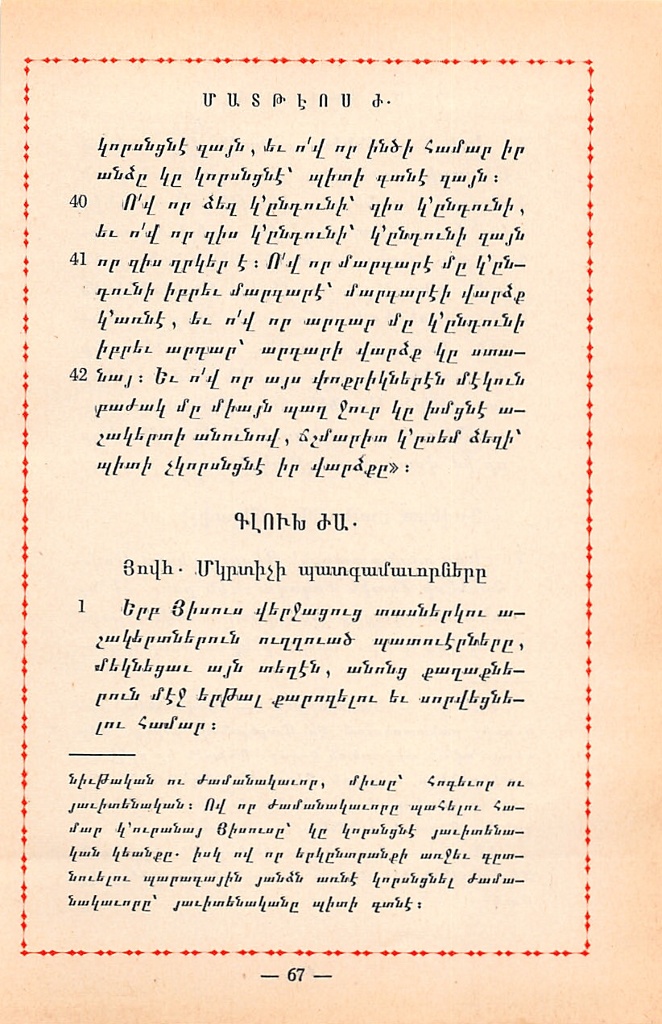 ՄԱՏԹԷՈՍ Ժ.
կորսնցնէ զայն, եւ ո՛վ որ ինծի համար իր
անձը կը կորսնցնէ՝ պիտի գտնէ զայն։
40 Ո՛վ որ ձեզ կ՚ընդունի՝ զիս կ՚ընդունի,
եւ ո՛վ որ զիս կ՚ընդունի՝ կ՚ընդունի զայն
41 որ զիս ղրկեր է։ Ո՛վ որ մարգարէ մը կ՚ըն—
դունի իբրեւ մարգարէ՝ մարգարէի վարձք
կ՚առնէ, եւ ո՛վ որ արդար մը կ՚ընդունի
իբրեւ արդար՝ արդարի վարձք կը ստա—
42 նայ։ Եւ ո՛վ որ այս փոքրիկներէն մէկուն
բաժակ մը միայն պաղ ջուր կը խմցնէ ա—
շակերտի անունով, ճշմարիտ կ՚ըսեմ ձեզի՝
պիտի չկորսնցնէ իր վարձքը»։
ԳԼՈՒԽ ԺԱ.
Յովհ. Մկրտիչի պատգամաւորները
1 Երբ Յիսուս վերջացուց տասներկու ա—
շակերտներուն ուղղուած պատուէրները,
մեկնեցաւ այն տեղէն, անոնց քաղաքնե—
րուն մէջ երթալ քարոզելու եւ սորվեցնե—
լու համար։
նիւթական ու ժամանակաւոր, միւսը՝ հոգեւոր ու
յաւիտենական։ Ով որ ժամանակաւորը պահելու հա—
մար կ՚ուրանայ Յիսուսը՝ կը կորսնցնէ յաւիտենա—
կան կեանքը. իսկ ով որ երկընտրանքի առջեւ գըտ—
նուելու պարագային յանձն առնէ կորսնցնել ժամա—
նակաւորը՝ յաւիտենականը պիտի գտնէ։
— 67 —